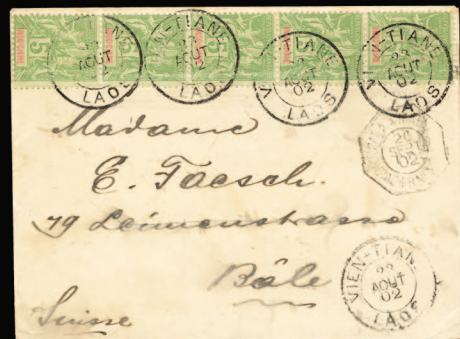 VIEN-TIANE 23 AOUT 02 LAOS
VIEN-TIANE 23 AOUT 02 LAOS
VIEN-TIANE 23 AOUT 02 LAOS
VIEN-TIANE 23 AOUT 02 LAOS
Madame
E. Faesch.
79 Leimenstrasse
Bâle
VIEN-TIANE 23 AOUT 02 LAOS
Suisse